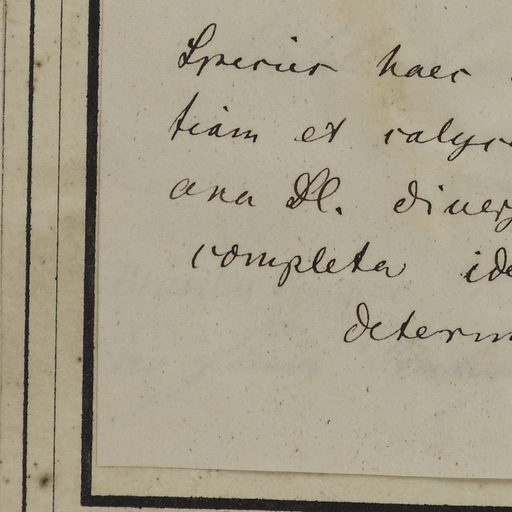 Species haec
tiam et calyc
ana Pl. diverg
completa ide
determ